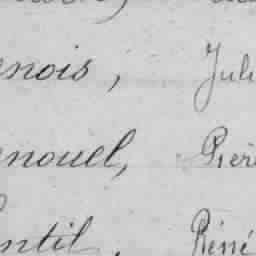 enois, Juli
enouel, Pier
entil, Réné